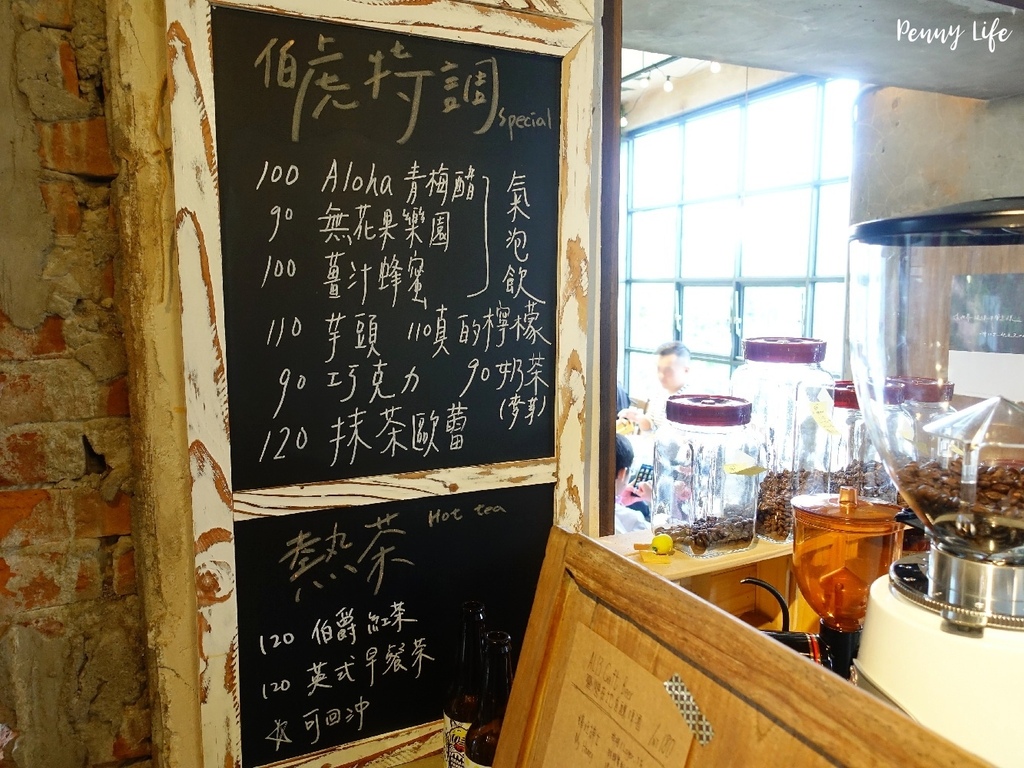 Penny Life
伯虎特調 Special
100 Aloha 青梅醋
90 無花果樂園
100 薑汁蜂蜜
氣泡飲
110 芋頭 110 真的檸檬
90 巧克力 90 奶茶
(麥芽)
120 抹茶歐蕾
熱茶 Hot tea
120 伯爵紅茶
120 英式早餐茶
☆可回沖